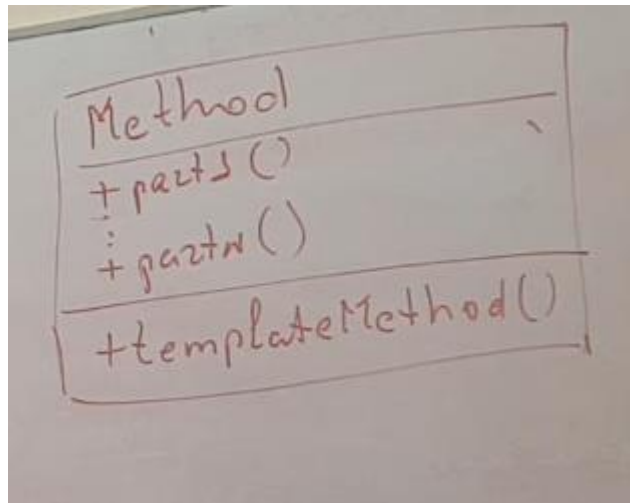 Method
+part1()
⋮
+partN()
+templateMethod()